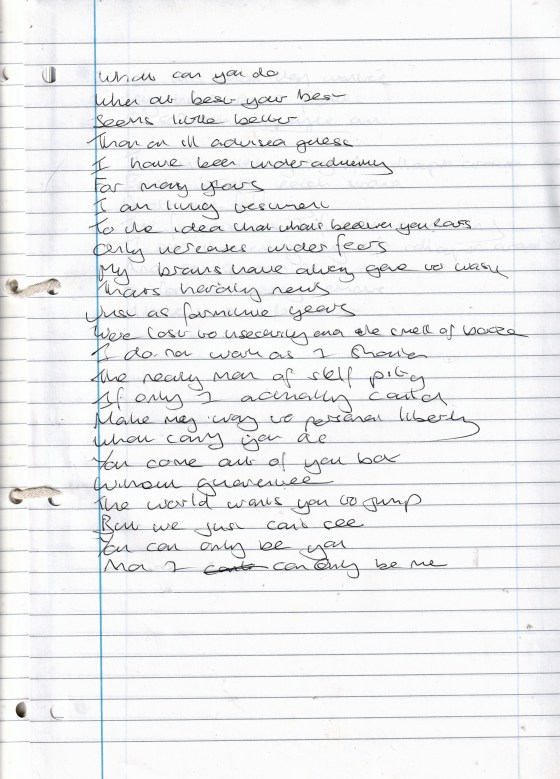 What can you do
When all best your best
Seems little better
Than an ill advised guess
I have been under
For many years
I am living
To the idea that what's between your ears
Only increases under fears
My brains have always gone to waste
That's hardly news
Just as formative years
Were lost to insecurity and the smell of
I do not work as I should
The ready man of self pity
If only I actually could
Make my way to personal liberty
What can you do
You come out of your box
Without guarantee
The world wants you to jump
But we just can't see
You can only be you
And I can only be me